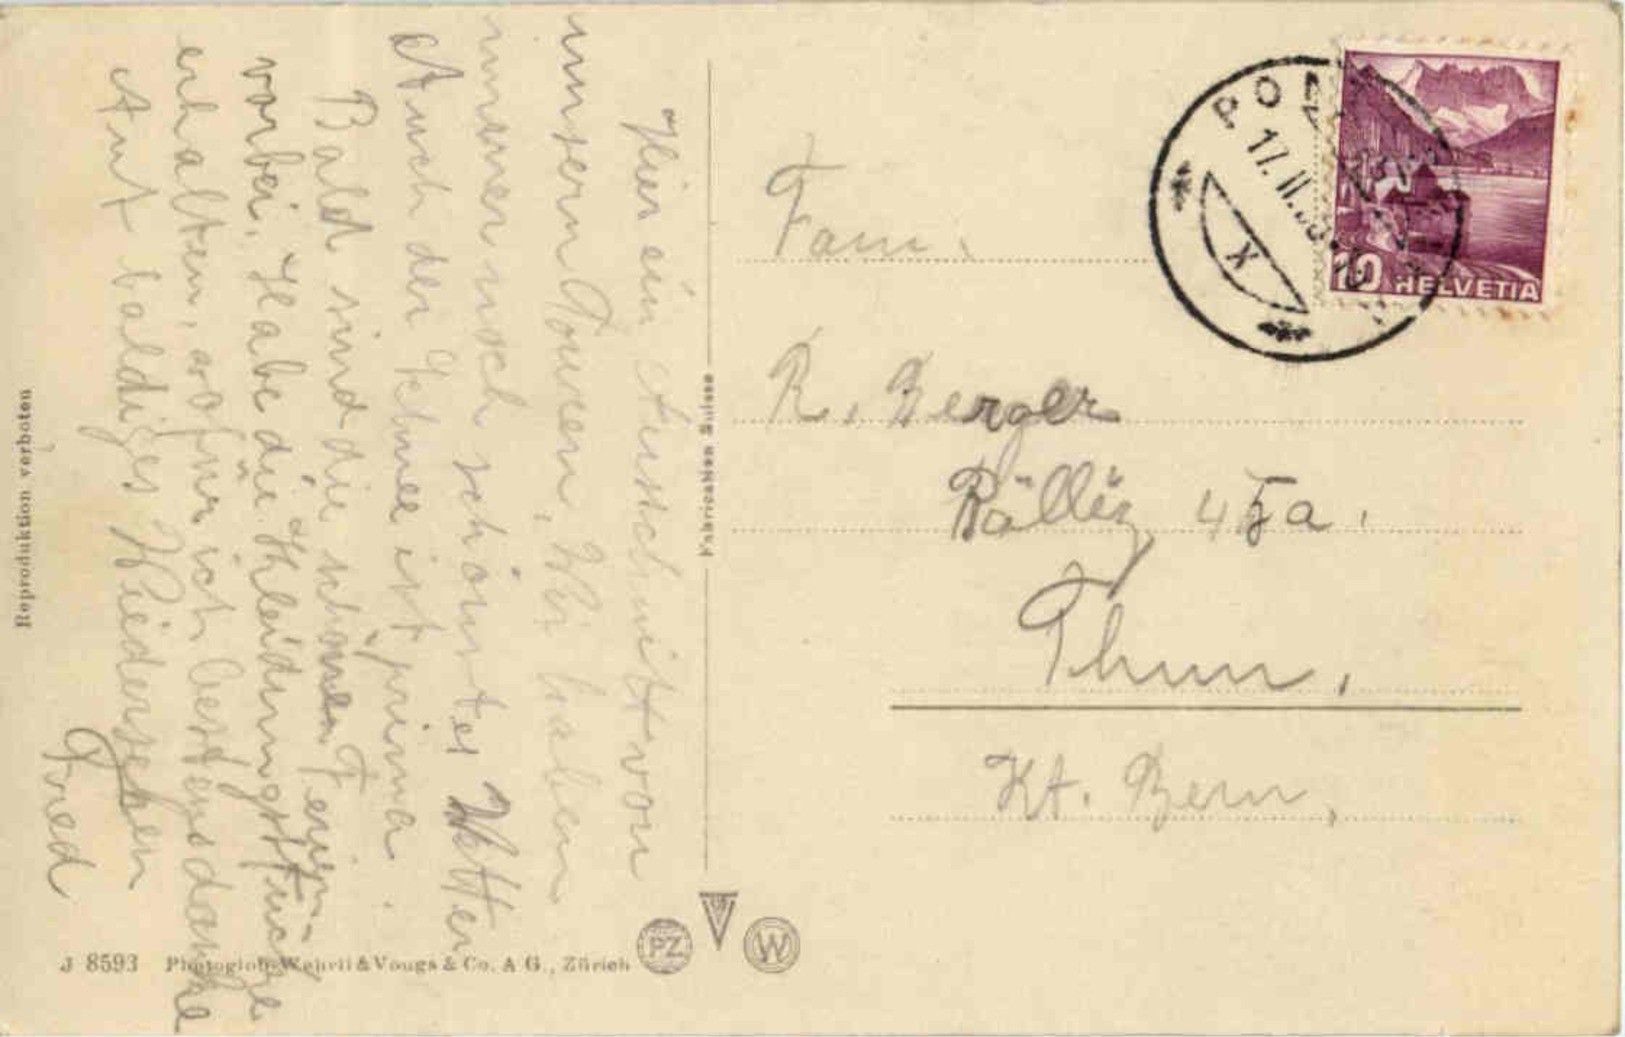 Hier ein Ausschnitt von
unsern Touren, Wir haben
immer noch schönstes Wetter
Auch der Schnee ist prima.
Bald sind die schönen Ferien
vorbei. Habe die Kleidungsstücke
erhalten, wofür ich bestens danke
Auf baldiges Wiedersehen
Fried
Fam.
R. Berger
Bälliz 45a.
Thun,
Kt. Bern,
17. II.
X
10 HELVETIA
Reproduktion verboten
Fabrication Suisse
J 8593 Photoglob-Wehrli & Vouga & Co. A G., Zürich
PZ
W